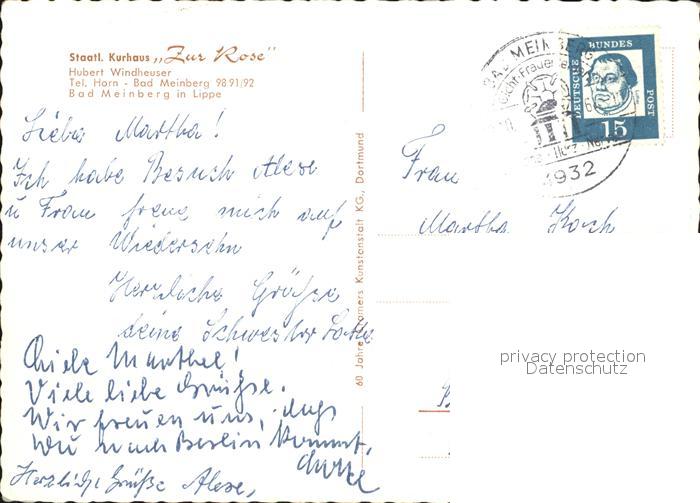 Staatl. Kurhaus „Zur Rose"
Hubert Windheuser
Tel. Horn - Bad Meinberg 98 91/92
Bad Meinberg in Lippe
Liebe Martha!
Ich habe Besuch Alese
u Frau freue mich auf
unser Wiedersehn
Herzliche Grüße
deine Schwester Lotte
Viele liebe Grüße.
Wir freuen uns, dass
Du nach Berlin kommst.
Herzliche Grüße Alese,
60 Jahre Cramers Kunstanstalt KG., Dortmund
BAD MEINBERG
4932
DEUTSCHE BUNDESPOST
15
Frau
Martha Koch
privacy protection
Datenschutz